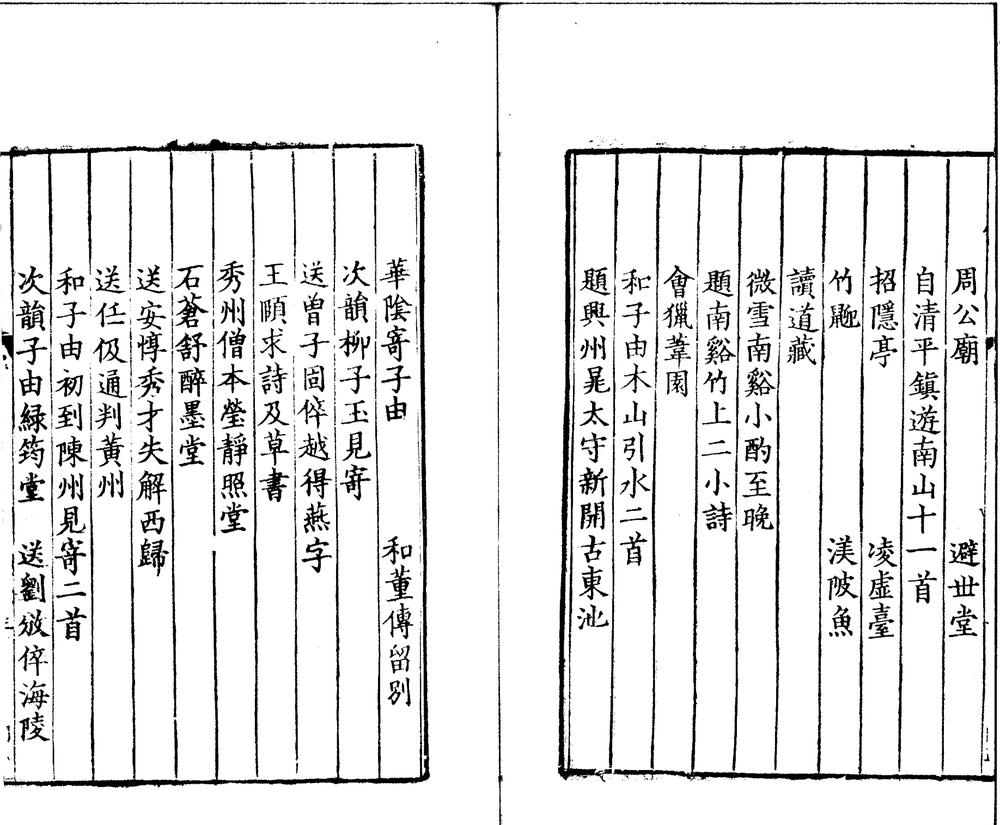 周公廟　避世堂
自清平鎮遊南山十一首
招隱亭　凌虛臺
竹䶉　渼陂魚
讀道藏
微雪南谿小酌至晚
題南谿竹上二小詩
會獵葦園
和子由木山引水二首
題興州晁太守新開古東池
華陰寄子由　和董傳留別
次韻柳子玉見寄
送曾子固倅越得燕字
王頤求詩及草書
秀州僧本瑩靜照堂
石蒼舒醉墨堂
送安惇秀才失解西歸
送任伋通判黃州
和子由初到陳州見寄二首
次韻子由緑筠堂　送劉攽倅海陵